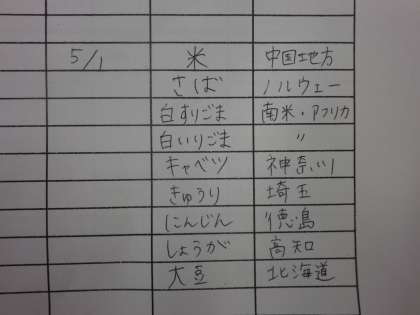 5/1 米 中国地方
さば ノルウェー
白すりごま 南米・アフリカ
白いりごま 〃
キャベツ 神奈川
きゅうり 埼玉
にんじん 徳島
しょうが 高知
大豆 北海道